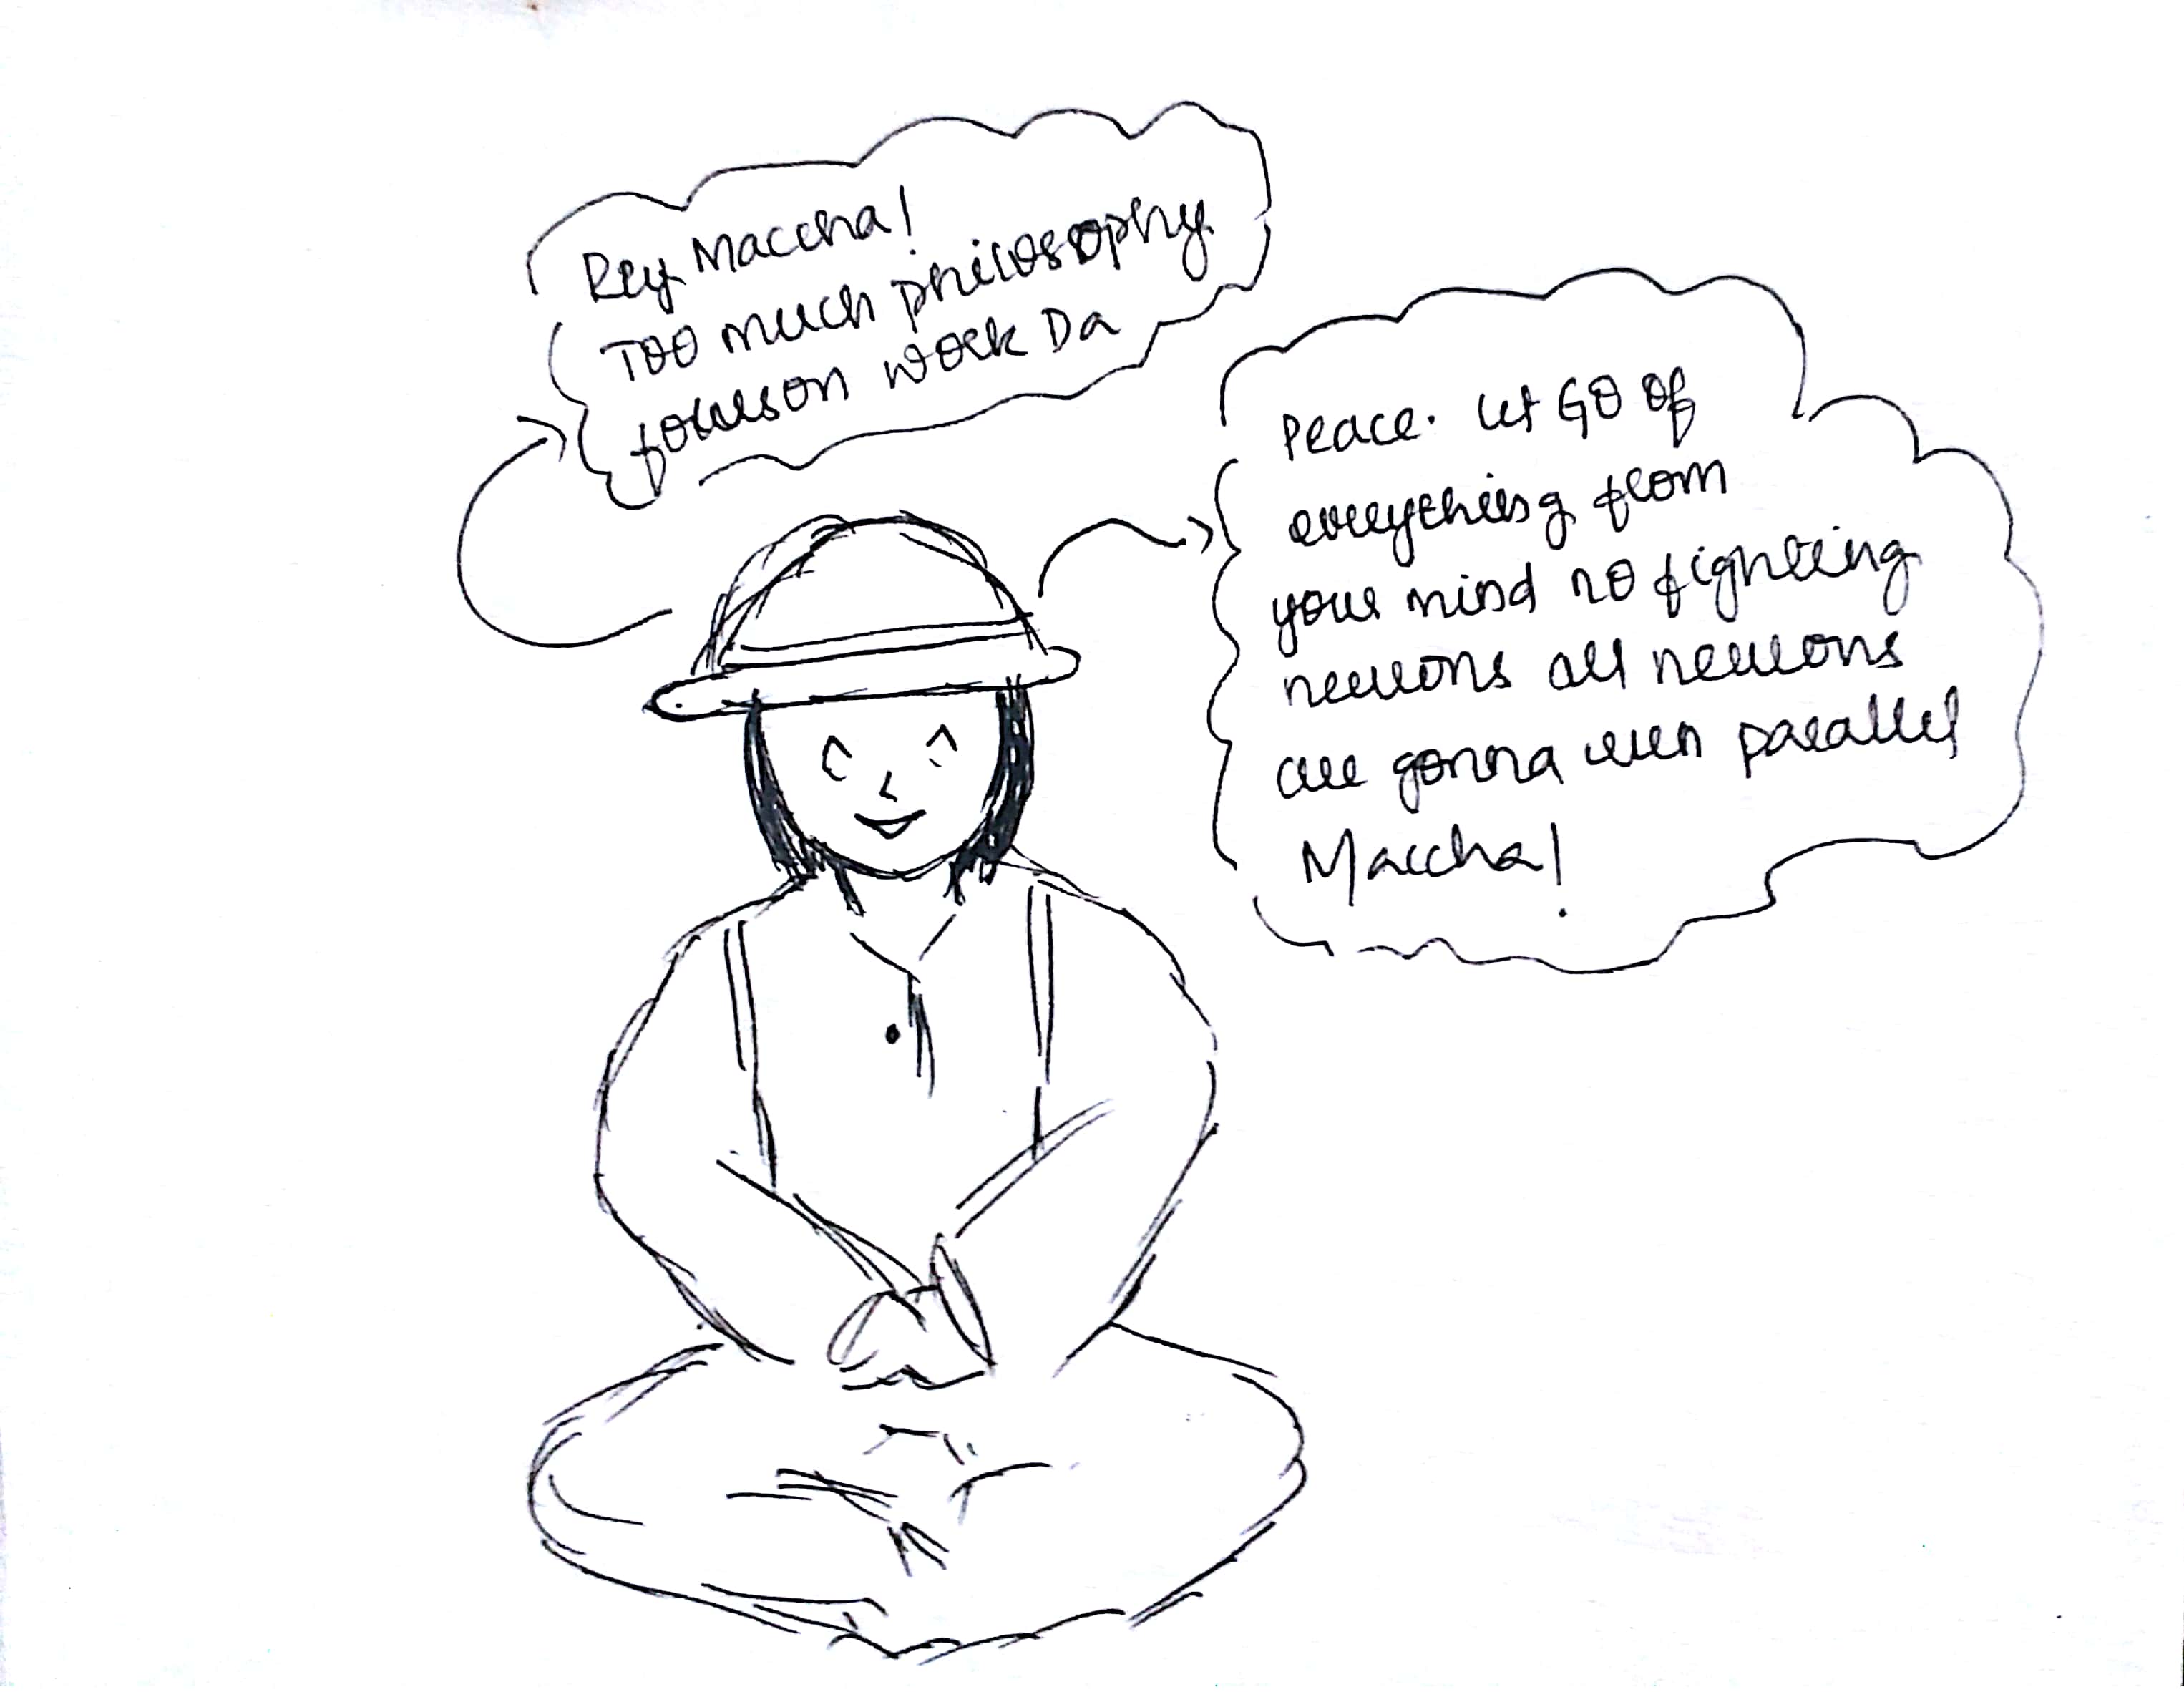 Rey Maccha!
Too much philosophy.
focus on work Da
Peace. Let GO of
everything from
your mind no fighting
neurons all neurons
are gonna run parallel
Maccha!